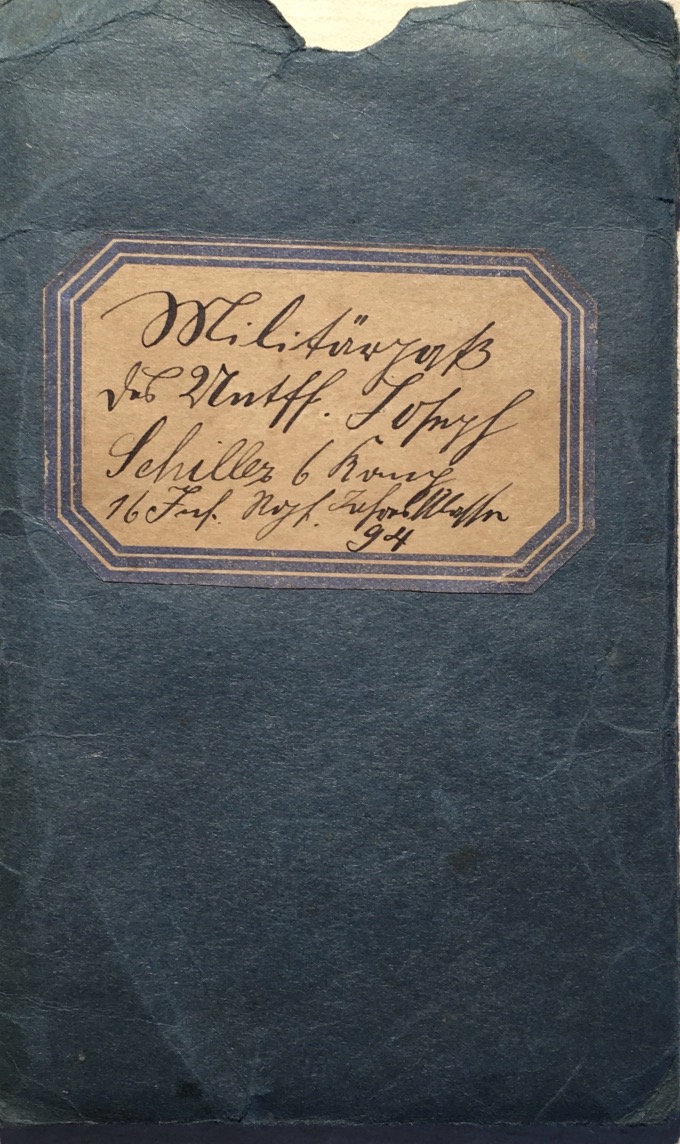 Militärpaß
des Untff. Joseph
Schiller 6 Komp
16 Inf. Regt. Jahresklasse
94